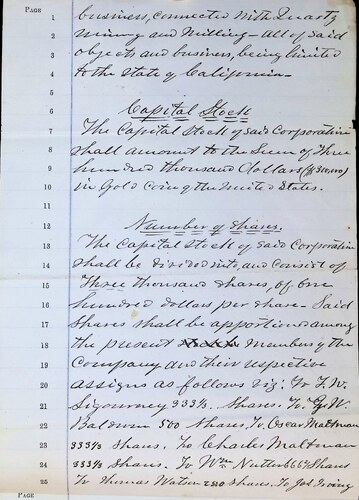 PAGE
1 business, connected with Quartz
2 mining and milling - all of said
3 objects and business, being limited
4 to the State of California -
5
6 Capital Stock
7 The Capital Stock of said Corporation
8 shall amount to the Sum of Three
9 hundred thousand dollars ($300,000)
10 in Gold Coin of the United States.
11
12 Number of Shares.
13 The Capital Stock of said Corporation
14 shall be divided into, and consist of
15 Three thousand shares, of one
16 hundred dollars per share - Said
17 shares shall be apportioned among
18 the present members of the
19 Company and their respective
20 assigns as follows viz: To F. W.
21 Sigourney 333⅓. Shares. To W.
22 Baldwin 500 shares. To Oscar Maltman
23 333⅓ Shares. To Charles Maltman
24 333⅓ Shares. To Wm Nutter 666⅔ Shares
25 To Thomas Watson 250 Shares. To Jos. Irving
PAGE